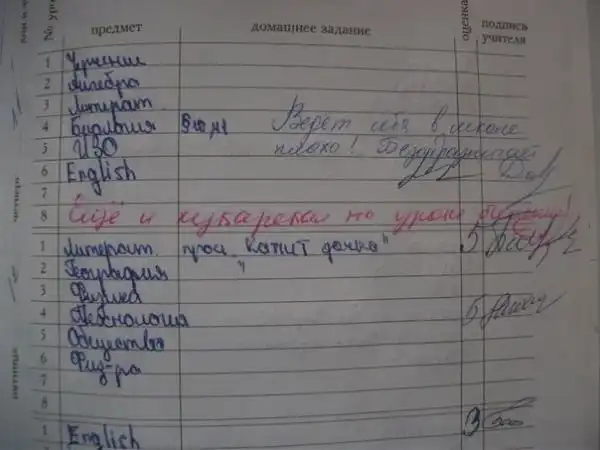 № предмет домашнее задание оценка подпись учителя
1 Черчение
2 Алгебра
3 Литерат.
4 Биология §10, Ведет себя в школе
5 ИЗО плохо! Безобразничает
6 English
7
8 Ещё и кукарекал на уроке биологии!
1 Литерат. проч. "Капит дочка" 5
2 География "
3 Физика
4 Технология 5
5 Общество
6 Физ-ра
7
8
1 English 3
четверг
пятница